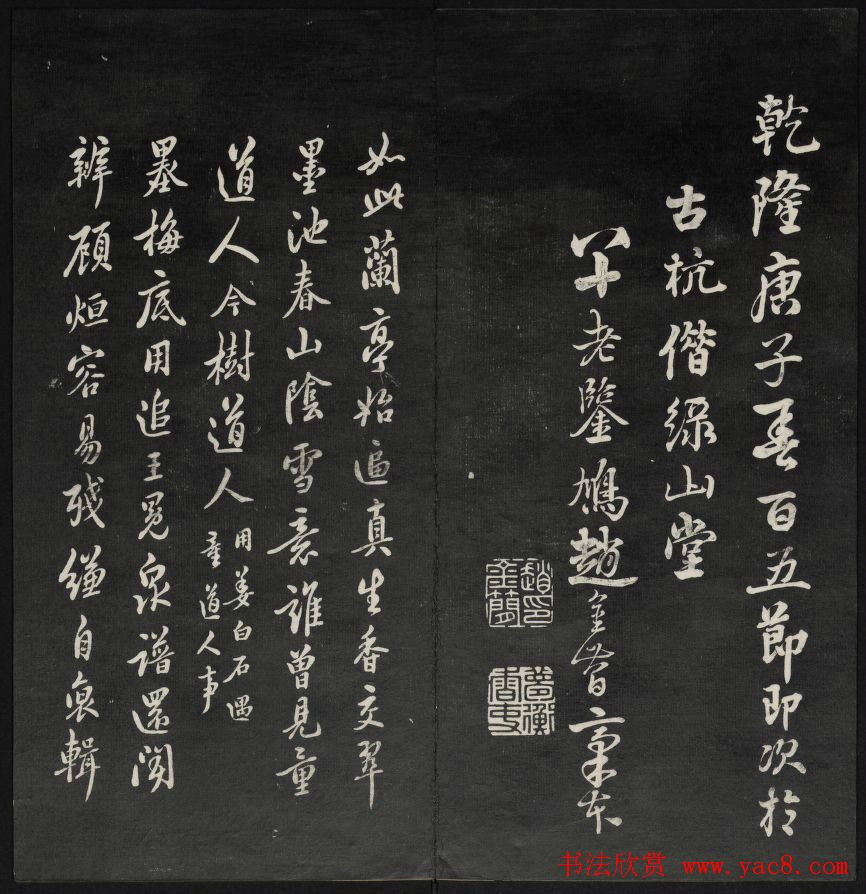 乾隆庚子春百五節即次於
古杭偕綠山堂
八十老鑒鴆趙金簡
如此蘭亭始逼真生香交翠
墨池春山陰雪意誰曾見童
道人今樹道人用姜白石遇
童道人事
墨梅底用追王冕泉譜還闕
辨顧烜容易殘縑自裒輯
書法欣賞 www.yac8.com